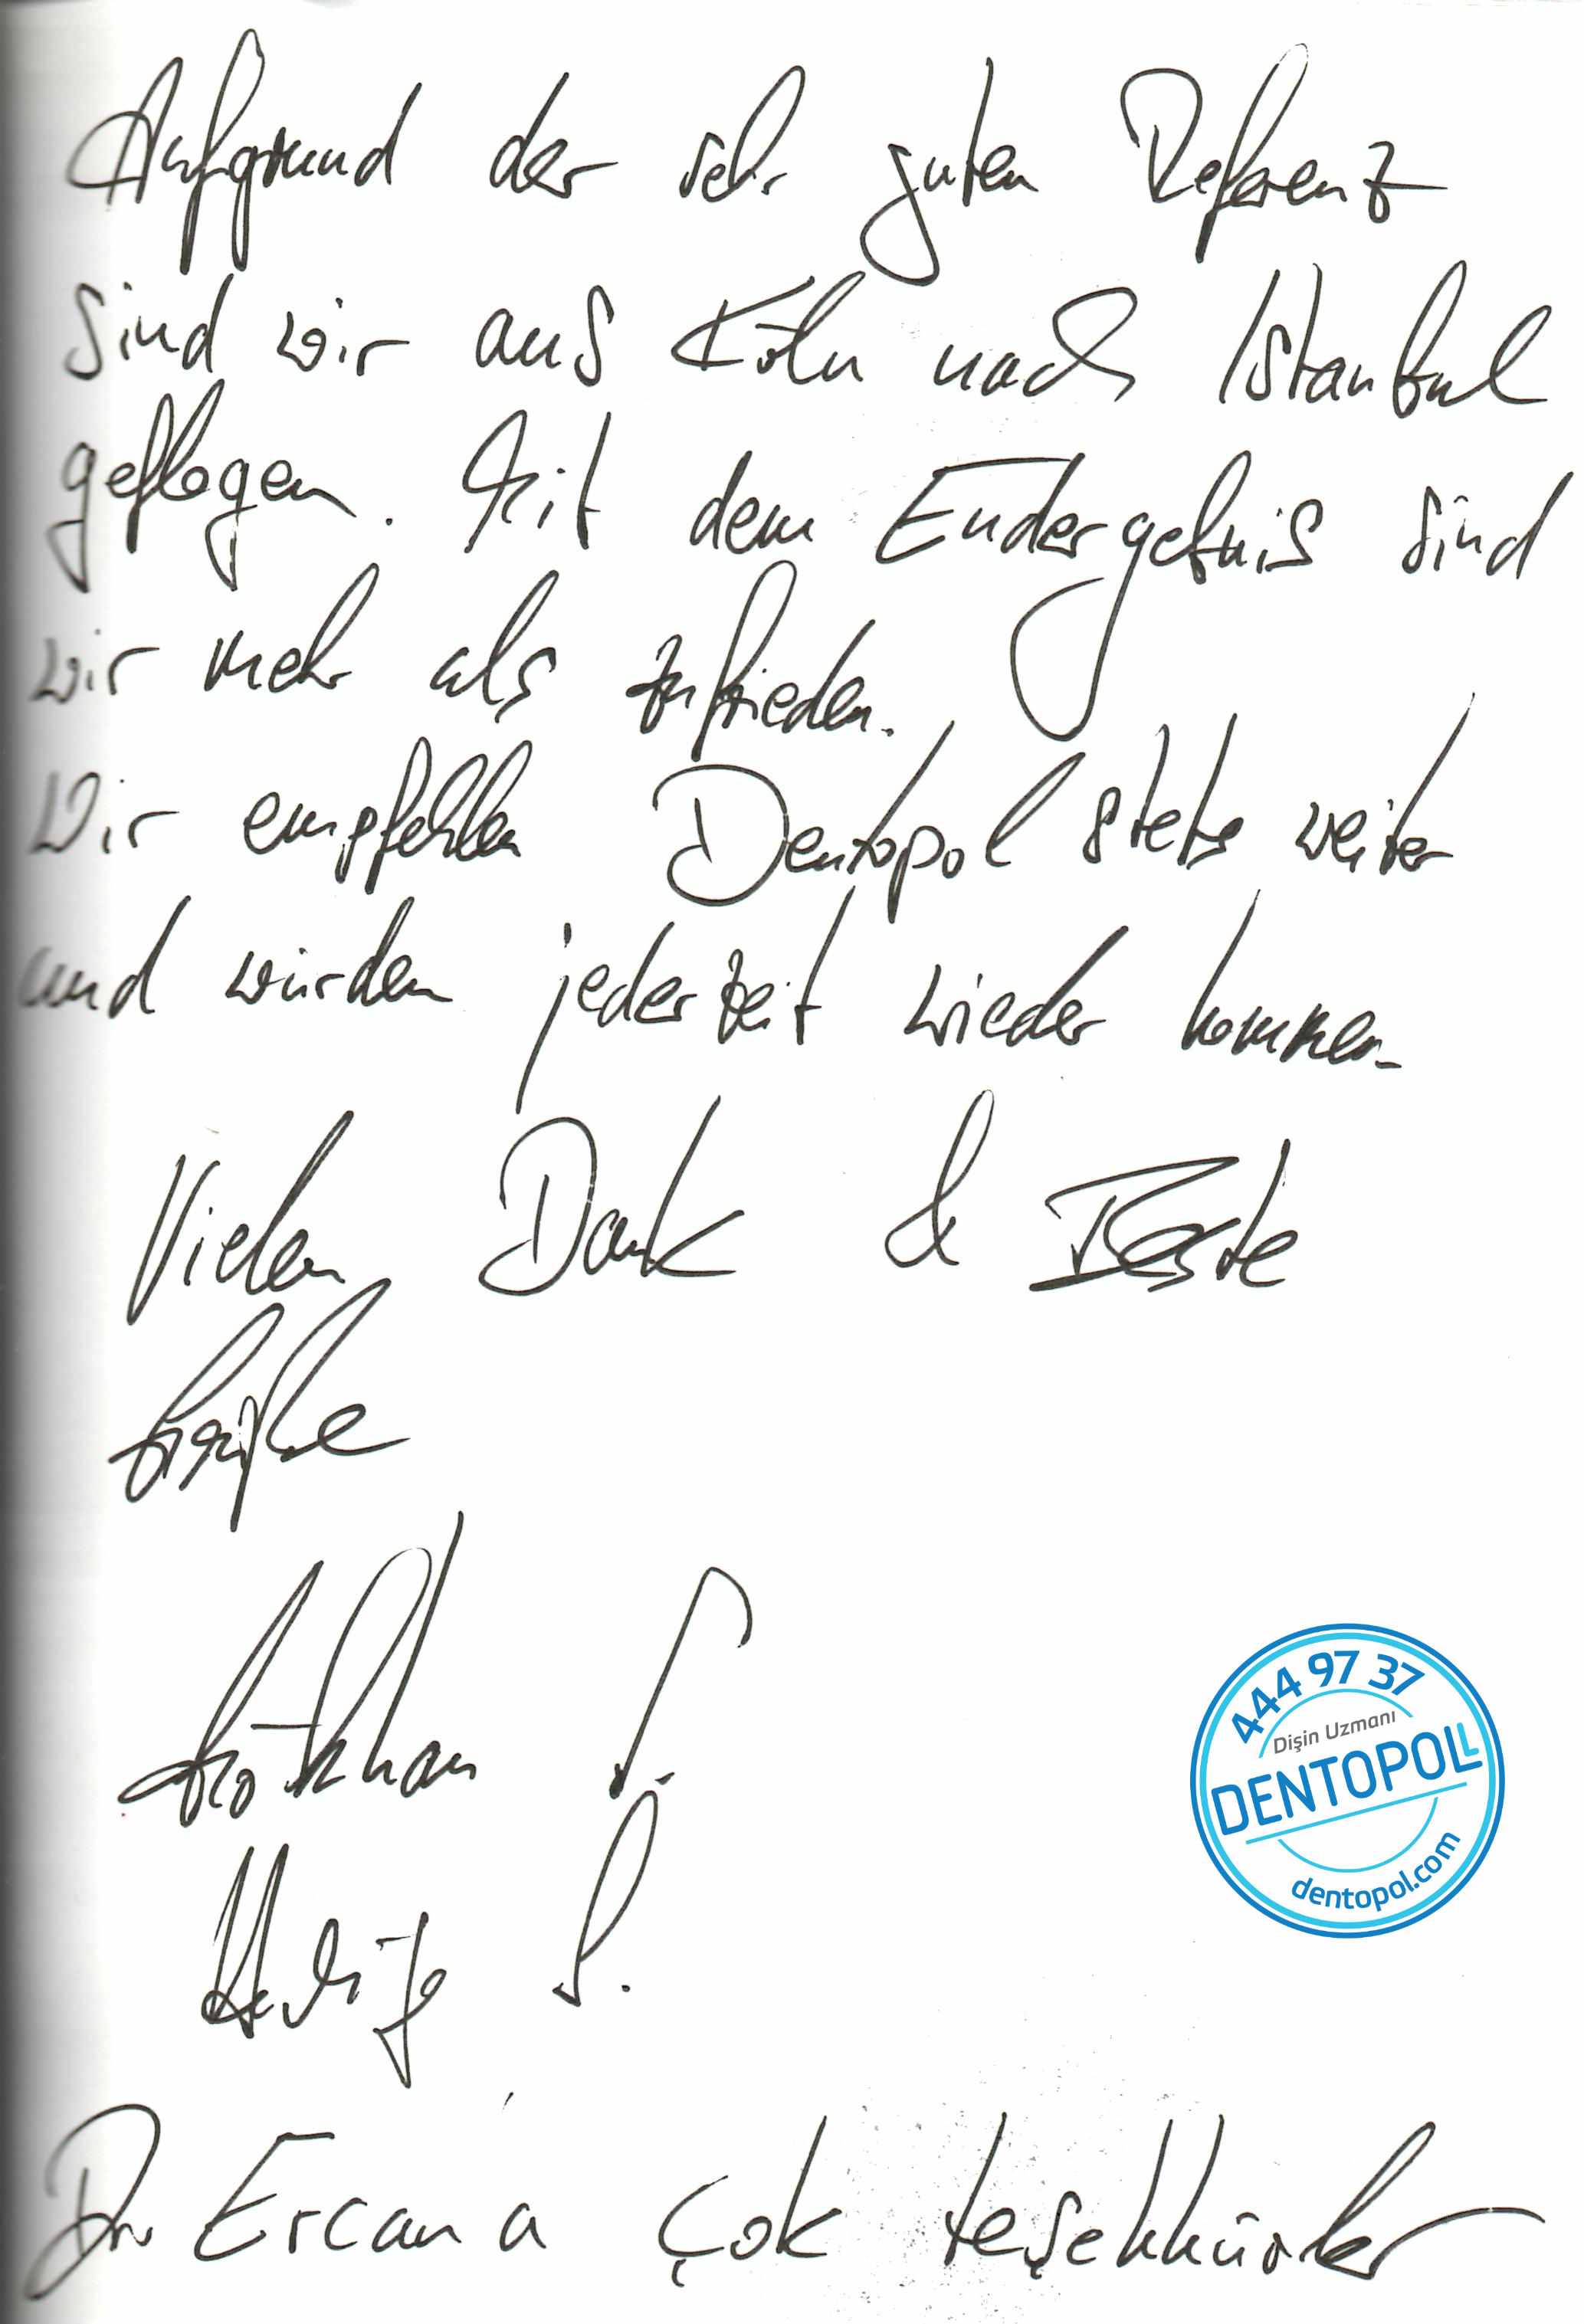 Aufgrund der sehr guten Referenz
sind wir aus Köln nach Istanbul
geflogen. Mit dem Endergebnis sind
wir mehr als zufrieden.
Wir empfehlen Dentopol stets weiter
und würden jederzeit wieder kommen.
Vielen Dank & Beste
Grüße
Gökhan S.
S.
444 97 37
Dişin Uzmanı
DENTOPOL
dentopol.com
Dr. Ercan a çok teşekkürler